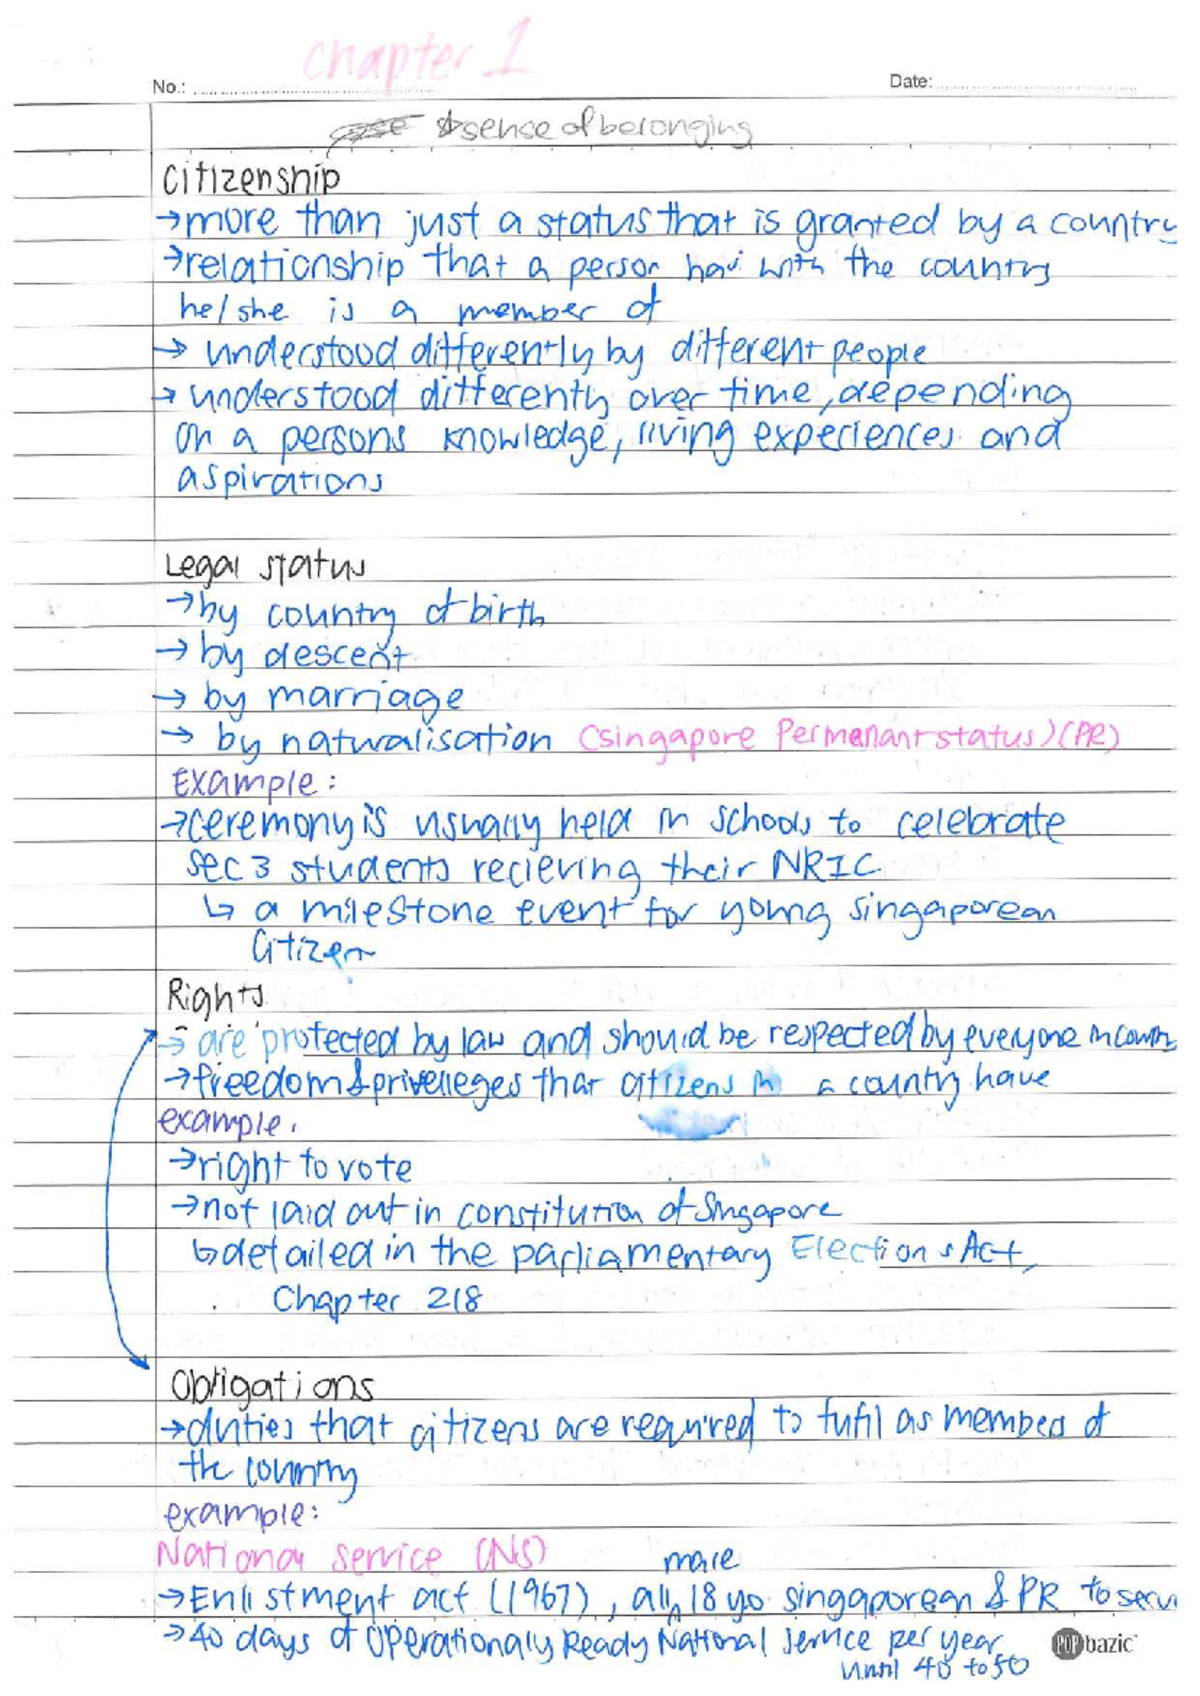 chapter 1
No.: Date:
sense of belonging
Citizenship
→more than just a status that is granted by a country
→relationship that a person has with the country
he/she is a member of
→ understood differently by different people
→ understood differently over time, depending
on a persons knowledge, living experiences and
aspirations
Legal status
→by country of birth
→ by descent
→ by marriage
→ by naturalisation (singapore Permanant status) (PR)
Example:
→ceremony is usually held in schools to celebrate
sec 3 students recieving their NRIC
↳ a milestone event for young singaporean
citizen
Rights
→ are protected by law and should be respected by everyone in
→freedom & privelleges that citizens in a country have
example.
→right to vote
→not laid out in constitution of Singapore
↳detailed in the parliamentary Elections Act,
Chapter 218
Obligations
→duties that citizens are required to fufil as members of
the country
example:
National service (NS)
→Enlistment act (1967), all male 18 yo singaporean & PR to serv
→40 days of Operationaly Ready National Service per year
until 40 to 50
POP bazic